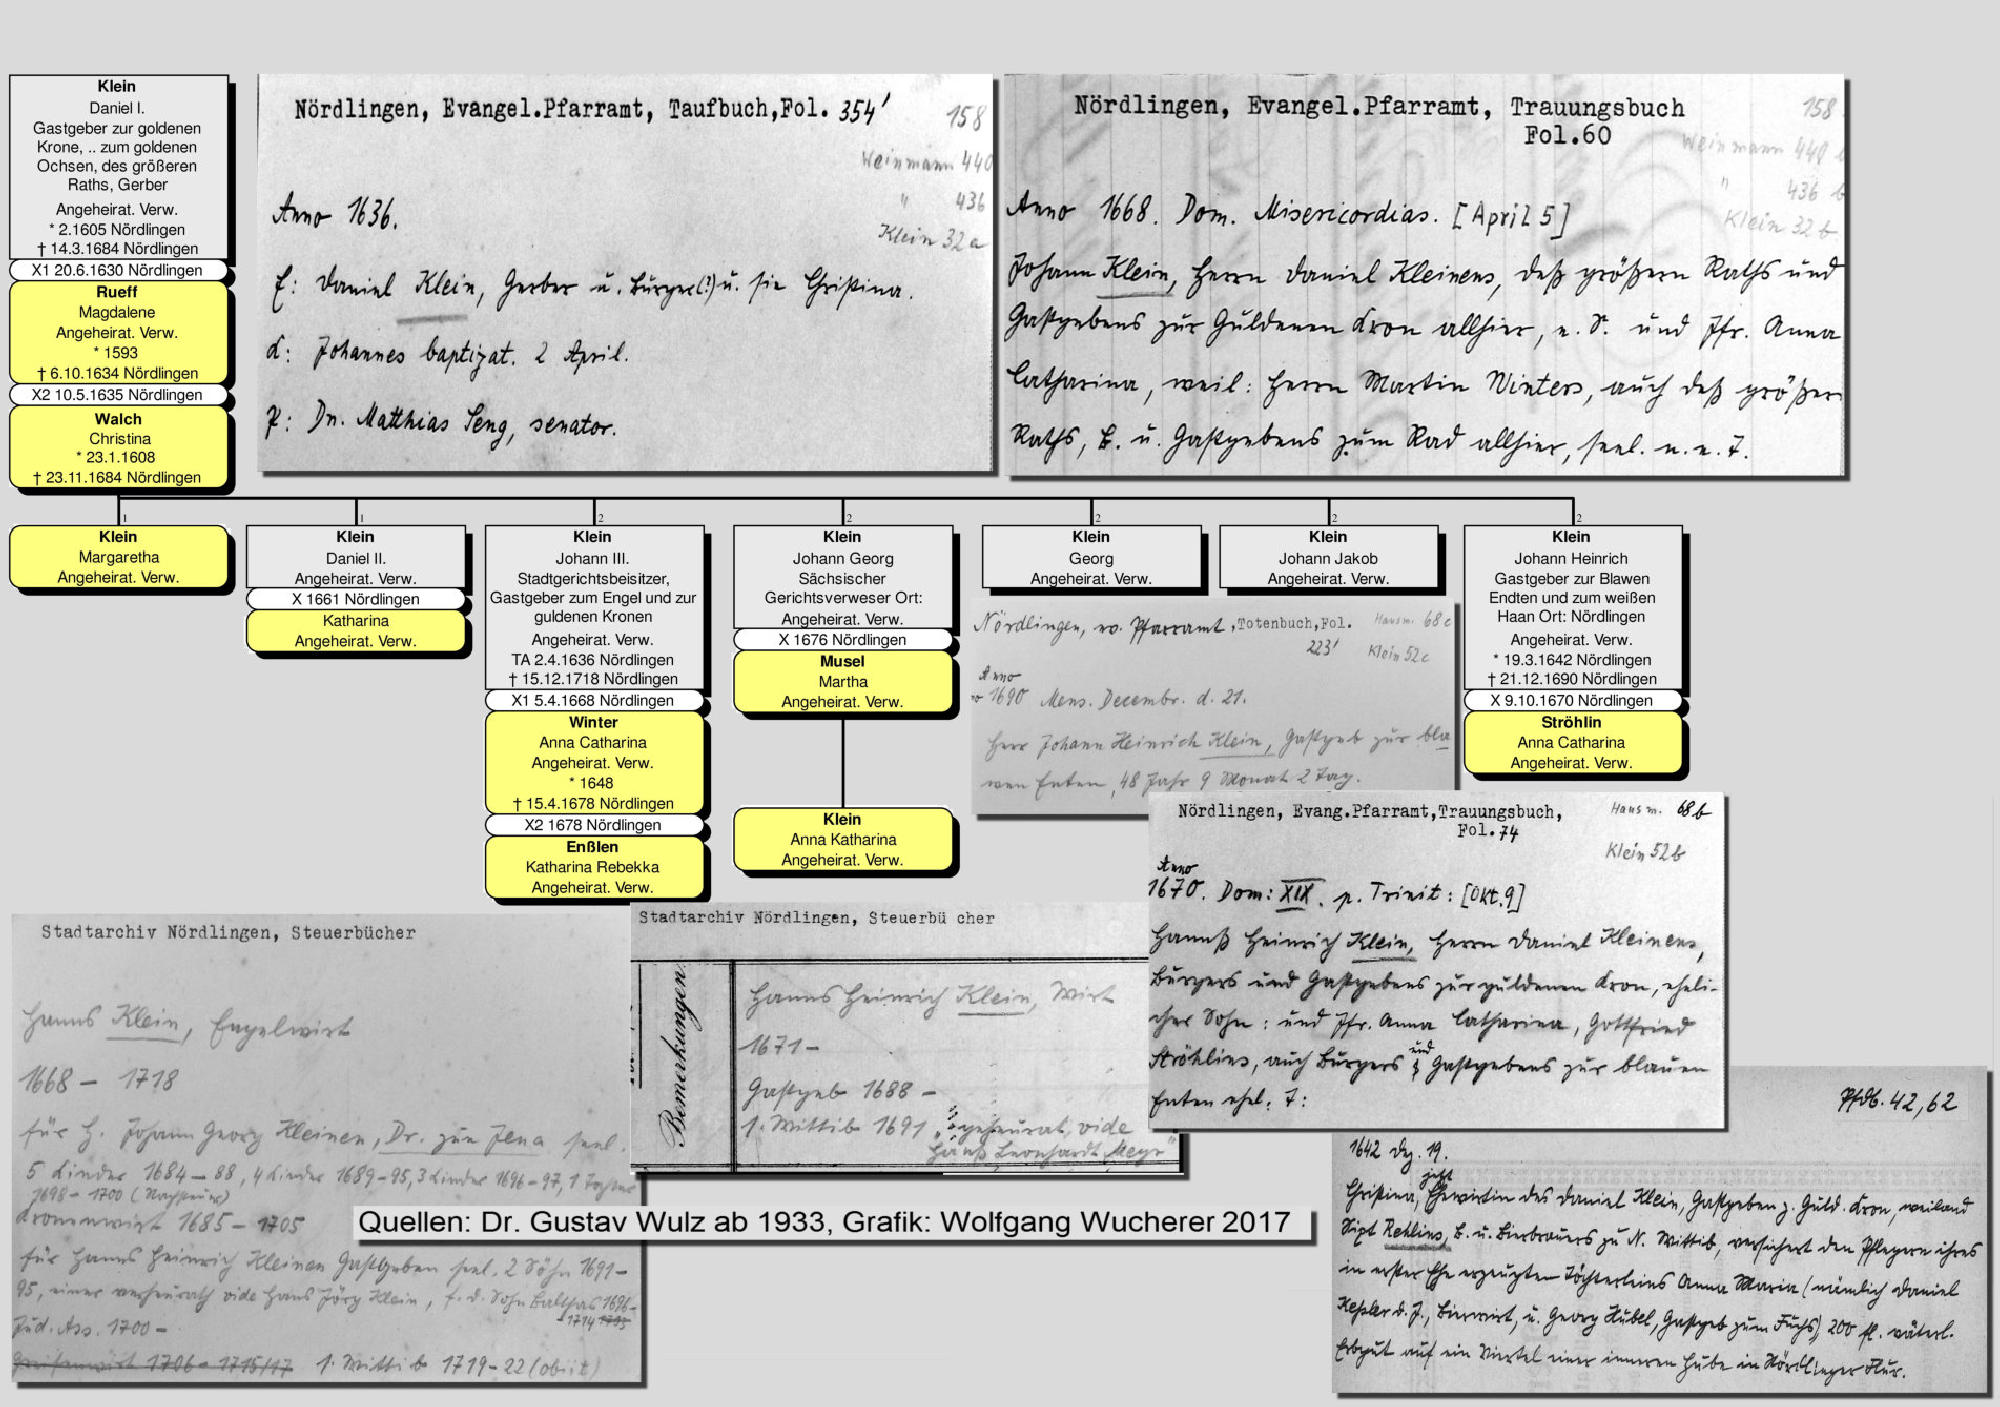 Klein
Daniel I.
Gastgeber zur goldenen
Krone, .. zum goldenen
Ochsen, des größeren
Raths, Gerber
Angeheirat. Verw.
* 2.1605 Nördlingen
† 14.3.1684 Nördlingen
X1 20.6.1630 Nördlingen
Rueff
Magdalene
Angeheirat. Verw.
* 1593
† 6.10.1634 Nördlingen
X2 10.5.1635 Nördlingen
Walch
Christina
* 23.1.1608
† 23.11.1684 Nördlingen
Nördlingen, Evangel.Pfarramt, Taufbuch,Fol. 354'
158
Weinmann 440
" 436
Klein 32a
Anno 1636.
f: Daniel Klein, Gerber u. Bürger(!) u. sie Christina.
d: Johannes baptizat. 2 April.
p: Dn. Matthias Seng, senator.
Nördlingen, Evangel.Pfarramt, Trauungsbuch
Fol.60
158
Weinmann 440 b
" 436 b
Klein 32 b
Anno 1668. Dom. Misericordias. [April 5]
Johann Klein, Herrn Daniel Kleinens, deß größern Raths und
Gastgebens zur Güldenen Kron allhier, e. S. und Jfr. Anna
Catharina, weil: Herrn Martin Winters, auch deß größern
Raths, B. u. Gastgebens zum Rad allhier, seel. n. e. T.
1
Klein
Margaretha
Angeheirat. Verw.
1
Klein
Daniel II.
Angeheirat. Verw.
X 1661 Nördlingen
Katharina
Angeheirat. Verw.
2
Klein
Johann III.
Stadtgerichtsbeisitzer,
Gastgeber zum Engel und zur
guldenen Kronen
Angeheirat. Verw.
TA 2.4.1636 Nördlingen
† 15.12.1718 Nördlingen
X1 5.4.1668 Nördlingen
Winter
Anna Catharina
Angeheirat. Verw.
* 1648
† 15.4.1678 Nördlingen
X2 1678 Nördlingen
Enßlen
Katharina Rebekka
Angeheirat. Verw.
2
Klein
Johann Georg
Sächsischer
Gerichtsverweser Ort:
Angeheirat. Verw.
X 1676 Nördlingen
Musel
Martha
Angeheirat. Verw.
Klein
Anna Katharina
Angeheirat. Verw.
2
Klein
Georg
Angeheirat. Verw.
2
Klein
Johann Jakob
Angeheirat. Verw.
2
Klein
Johann Heinrich
Gastgeber zur Blawen
Endten und zum weißen
Haan Ort: Nördlingen
Angeheirat. Verw.
* 19.3.1642 Nördlingen
† 21.12.1690 Nördlingen
X 9.10.1670 Nördlingen
Ströhlin
Anna Catharina
Angeheirat. Verw.
Nördlingen, ev. Pfarramt, Totenbuch,Fol.
223'
Hausm. 68c
Klein 52c
Anno
1690 Mens. Decembr. d. 21.
Herr Johann Heinrich Klein, Gastgeb zur bla
wen Enten, 48 Jahr 9 Monat 2 Tag.
Nördlingen, Evang.Pfarramt,Trauungsbuch,
Fol.74
Hausm. 68b
Klein 52b
Anno
1670. Dom: XIX. p. Trinit: [Okt.9]
Hannß Heinrich Klein, Herrn Daniel Kleinens,
Bürgers und Gastgebens zur guldenen Kron, eheli-
cher Sohn: und Jfr. Anna Catharina, Gottfried
Ströhlins, auch Bürgers und Gastgebens zur blauen
Enten ehel. T:
Stadtarchiv Nördlingen, Steuerbücher
Hanns Klein, Engelwirt
1668 - 1718
für H. Johann Georg Kleinen, Dr. zue Jena seel.
5 Kinder 1684-88, 4 Kinder 1689-95, 3 Kinder 1696-97, 1 Tochter
1698-1700 (Nachsteuer)
Kronenwirt 1685 - 1705
für Hanns Heinrich Kleinen Gastgeben seel. 2 Söhn 1691-
95, einer verheurath vide Hans Jörg Klein, f. d. Sohn Balthas 1696-
1714 1705
Jud. Ass. 1700 -
Greifenwirt 1706 - 1715/17 1. Wittib 1719-22 (obiit)
Stadtarchiv Nördlingen, Steuerbü cher
Bemerkungen
Hanns Heinrich Klein, Wirt
1671 -
Gastgeb 1688 -
1. Wittib 1691 "geheurat, vide
Hanß Leonhardt Meyr"
Quellen: Dr. Gustav Wulz ab 1933, Grafik: Wolfgang Wucherer 2017
Pfdb. 42,62
1642 Dez. 19.
jetzt
Christina, Ehewirtin des Daniel Klein, Gastgeben z. Guld. Kron, weiland
Sixt Rehlins, B. u. Bierbrauers zu N. Wittib, versichert den Pflegern ihres
in erster Ehe erzeugten Töchterleins Anna Maria (nämlich Daniel
Keßler d. J., Bierwirt, u. Georg Hübel, Gastgeb zum Fuchs) 200 fl. väterl.
Erbgut auf ein Viertel einer inneren Hube in Nördlinger Flur.